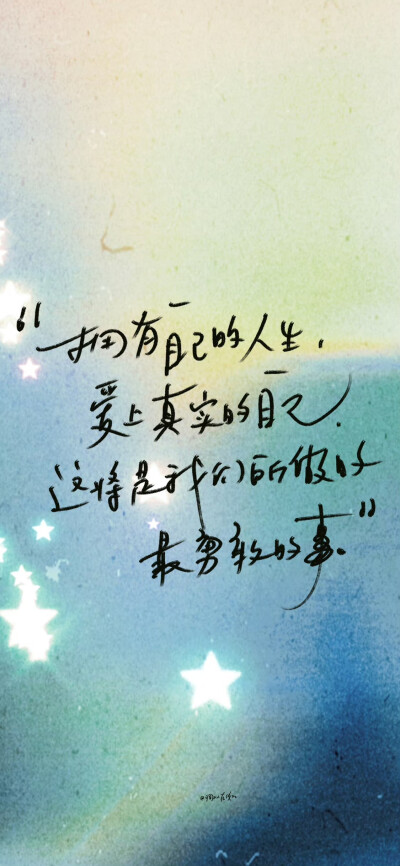 “拥有自己的人生，
爱上真实的自己，
这将是我们所做的
最勇敢的事。”